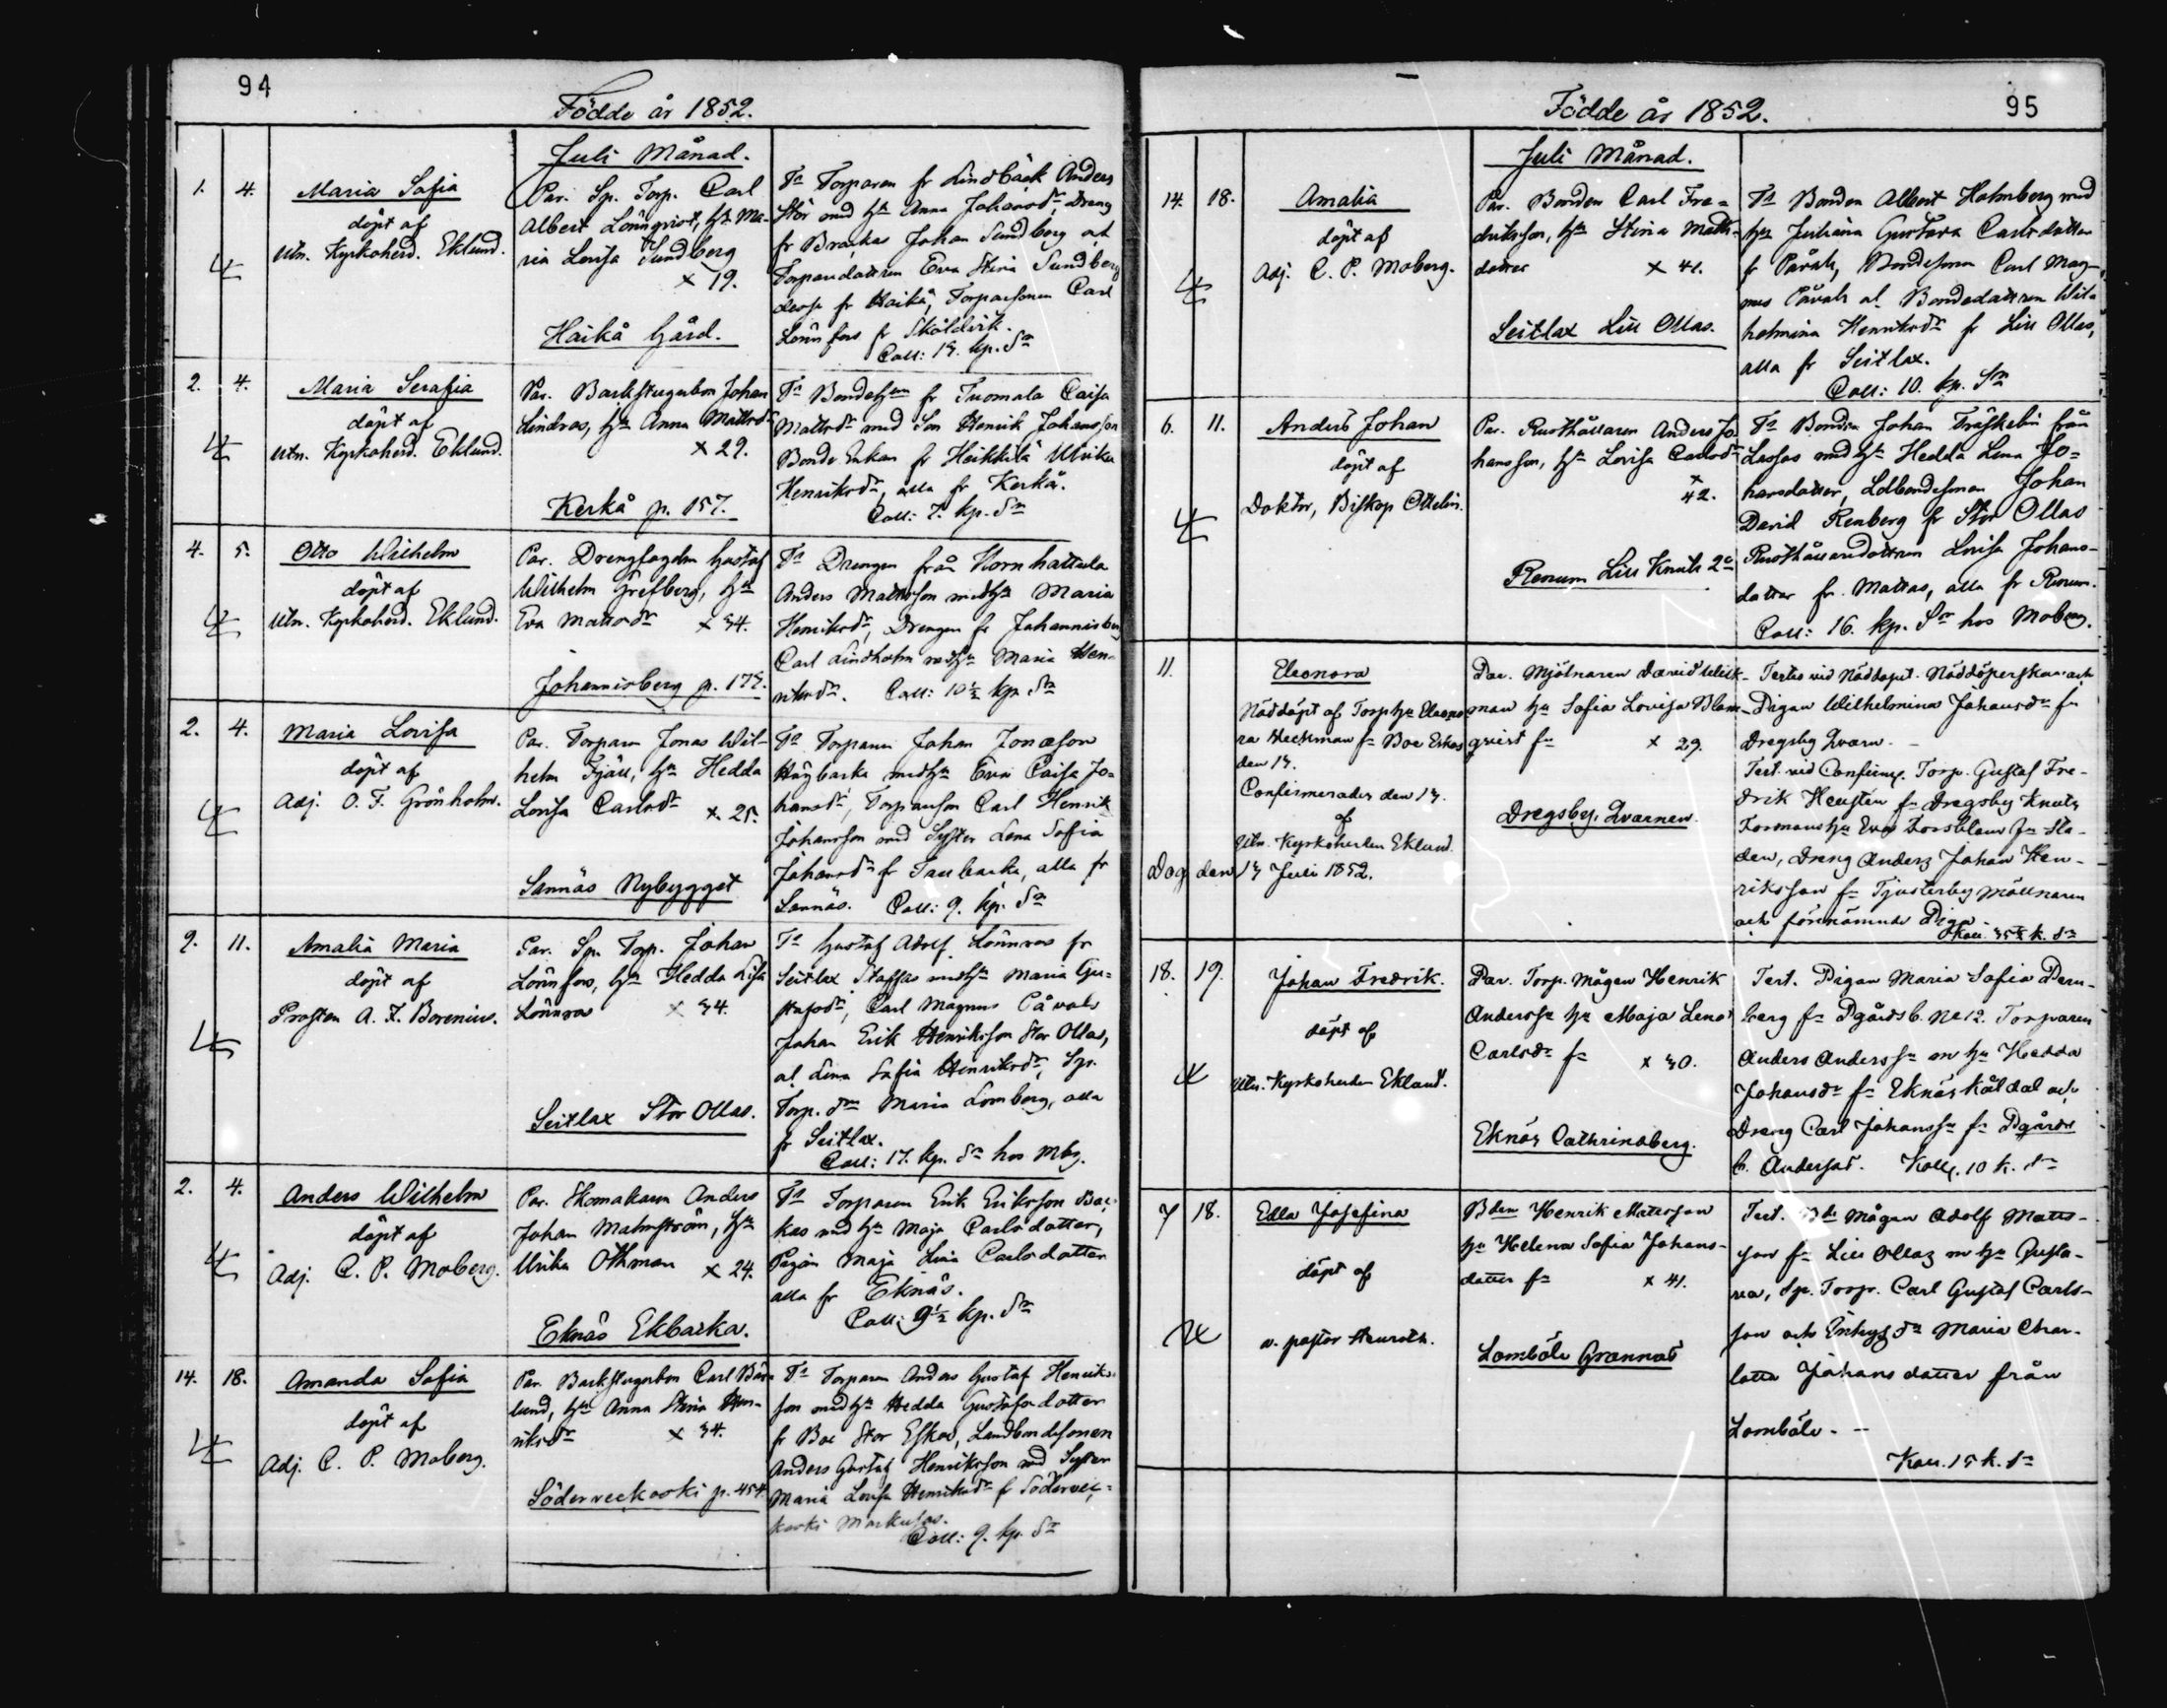 94
Födde år 1852.
Juli Månad.
1. 4. Maria Sofia
döpt af
Utn. Kyrkoherd. Eklund.
Par. Sp. Torp. Carl
Albert Lönnqvist, hu Ma-
ria Lovisa Sundberg
x 19.
Haikå Gård.
Ts Torparen fr Lindbäck Anders
Stör med hu Anna Johansdr, Dreng
fr Johan Sundberg at
Torparedattren Eva Stina Sundberg
fr Haikå, Torparsonen Carl
Lönnfors fr Sköldvik.
Coll: 15. kp. Sr
2. 4. Maria Serafia
döpt af
Utn. Kyrkoherd. Eklund.
Par. Backstugubon Johan
Lindroos, hu Anna Mattsdr
x 29.
Kerkå p. 157.
Ts Bondehun fr Tuomala Caisa
Mattsdr med Son Henrik Johansson
Bonde Enkan fr Heikkilä Ulrika
Henriksdr, alla fr Kerkå.
Coll: 7. kp. Sr
4. 5. Otto Wilhelm
döpt af
Utn. Kyrkoherd. Eklund.
Par. Drengfogden Gustaf
Wilhelm Grefberg, hu
Eva Mattsdr x 34.
Johannisberg p. 175.
Ts Drengen från Kornhattula
Anders Mattsson med hu Maria
Henriksdr, Drengen fr Johannisberg
Carl Lindholm med hu Maria Hen-
riksdr. Coll: 10½ kp Sr
2. 4. Maria Lovisa
döpt af
Adj. O. F. Grönholm.
Par. Torparen Jonas Wil-
helm Fjäll, hu Hedda
Lovisa Carlsdr x. 25.
Sannäs Nybygget
Ts Torparen Johan Jonasson
Högbacka med hu Eva Caisa Jo-
hansdr, Torparson Carl Henrik
Johansson med Syster Lena Sofia
Johansdr fr Tallbacka, alla fr
Sannäs. Coll: 9. kp. Sr
9. 11. Amalia Maria
döpt af
Prosten A. F. Borenius.
Par. Sp. Torp. Johan
Lönnfors, hu Hedda Lisa
Lönnroos x 34.
Seitlax Stor Ollas.
Ts Gustaf Adolf Lönnroos fr
Seitlax Staffas med hu Maria Gu-
stafsdr, Carl Magnus Påvals
Johan Erik Henriksson Stor Ollas,
at Lena Sofia Henriksdr, Sp.
Torp. dr Maria Lomberg, alla
fr Seitlax.
Coll: 17. kp. Sr hos Mbg.
2. 4. Anders Wilhelm
döpt af
Adj. C. P. Moberg.
Par. Skomakaren Anders
Johan Malmström, hu
Ulrika Othman x 24.
Eknäs Ekbacka.
Ts Torparen Erik Eriksson Bac-
kas med hu Maja Carlsdatter,
Pigan Maja Lisa Carlsdatter
alla fr Eknäs.
Coll: 9½ kp. Sr
14. 18. Amanda Sofia
döpt af
Adj. C. P. Moberg.
Par. Backstugubon Carl Bär-
lund, hu Anna Stina Hen-
riksdr x 34.
Söderveckoski p. 454
Ts Torparen Anders Gustaf Henriks-
son med hu Hedda Gustafsdotter
fr Boe Stor Eskas, Landbondesonen
Anders Gustaf Henriksson med Syster
Maria Lovisa Henriksdr fr Södervec-
koski Markusas.
Coll: 9. kp. Sr
95
Födde år 1852.
Juli Månad.
14. 18. Amalia
döpt af
Adj. C. P. Moberg.
Par. Bonden Carl Fre-
driksson, hu Stina Matts-
datter x 41.
Seitlax Lill Ollas.
Ts Bonden Albert Holmberg med
hu Juliana Gustava Carlsdatter
fr Påvals, Bondesonen Carl Mag-
nus Påvals at Bondedattren Wil-
helmina Henriksdr fr Lill Ollas,
alla fr Seitlax.
Coll: 10. kp. Sr
6. 11. Anders Johan
döpt af
Doktor, Biskop Ottelin.
Par. Rusthållaren Anders Jo-
hansson, hu Lovisa Carlsdr
x 42.
Renum Lill Knuts 2o
Ts Bonden Johan Träskelin från
Lassas med hu Hedda Lena Jo-
hansdatter, Ldbondesonen Johan
David Renberg fr Stor Ollas
Rusthållaredattren Lovisa Johans-
datter fr. Mattas, alla fr Renum.
Coll: 16. kp. Sr hos Moberg.
11. Eleonora
Nöddöpt af Torp hu Eleono-
ra Heckman fr Boe Eskas
den 13.
Confirmerades den 13.
af
Utn. Kyrkoherden Eklund.
Dag den 13 Juli 1852.
Par. Mjölnaren David Wick-
man hu Sofia Lovisa Blom-
qvist fr x 29.
Dregsby Qvarnen.
Testes vid Nöddopet. Nöddöperskan och
Pigan Wilhelmina Johansdr fr
Dregsby Qvarn. —
Test. vid Confirm. Torp. Gustaf Fre-
drik Hensten fr Dregsby Knuts
Formans hu Eva Forsblom fr Sta-
den, Dreng Anders Johan Hen-
riksson fr Tjusterby Möllnaren
och förenämnde Piga
Koll. 35½ k. Sr
18. 19. Johan Fredrik.
döpt af
Utn. Kyrkoherden Eklund.
Par. Torp. Mågen Henrik
Anderss. hu Maja Lena
Carlsdr fr x 30.
Eknäs Cathrinaberg.
Test. Pigan Maria Sofia Dern-
berg fr Pgårds b. No 12. Torparen
Anders Anderss. m hu Hedda
Johansdr fr Eknäs Kåldal och
Dreng Carl Johanss. fr Pgårds
b. Andersas. Koll. 10 k. Sr
7 18. Edla Josefina
döpt af
v. pastor Heuroth.
Bden Henrik Mattsson
hu Helena Sofia Johans-
datter fr x 41.
Lomböle Grannas
Test. Bde Mågen Adolf Matts-
son fr Lill Ollas m hu Gusta-
va, Sp. Torp. Carl Gustaf Carls-
son och Enkygs dr Maria Char-
lotta Johansdatter från
Lomböle. —
Koll. 15 k. Sr